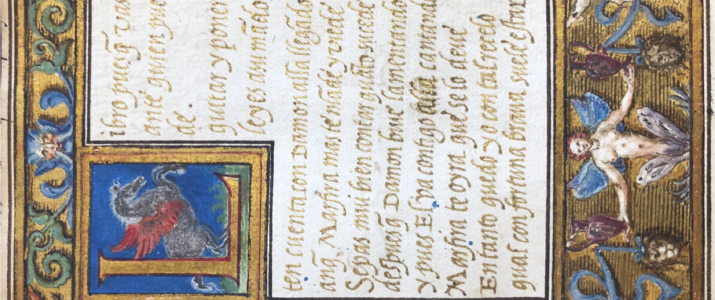 Libro pues q̃ va
ante quien me
de.
quitar y poner
leyes a su mãdo
ten cuenta con Damon alla llegado
anq̃ Marfira mas te mãde y vede
Sepas mui bien contar quãto sucede
despues q̃ Damon biue lamentando
y pues contigo caminando
Marfira te oyra, que solo deue
En tanto quedo yo con tal recelo
qual con fortuna braua suele